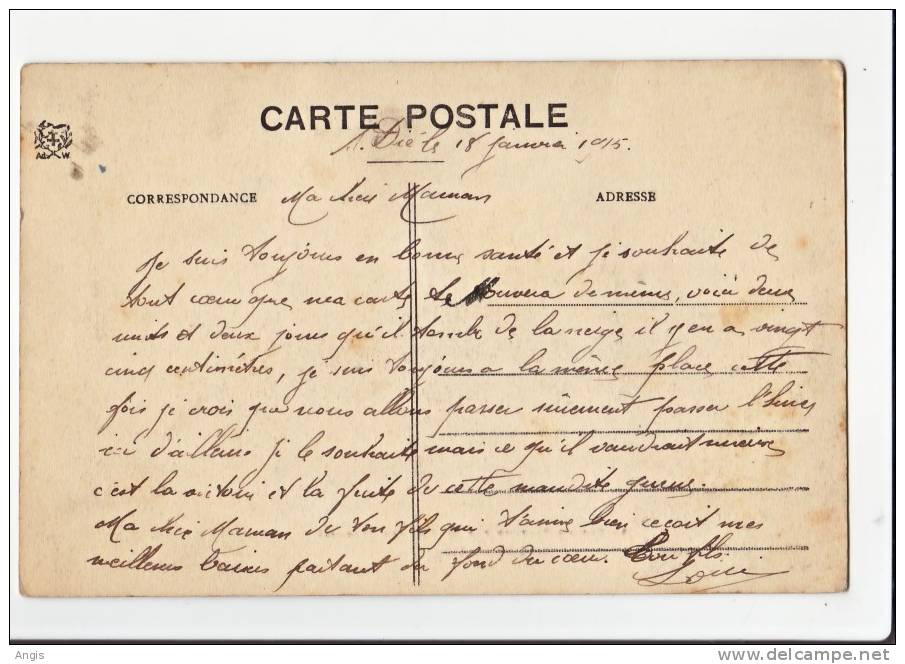 CARTE POSTALE
St. Dié le 18 janvier 1915.
CORRESPONDANCE Ma chère Maman ADRESSE
Je suis toujours en bonne santé et je souhaite de
tout cœur que ma carte te trouvera de même, voici deux
nuits et deux jours qu'il tombe de la neige il y en a vingt
cinq centimètres, je suis toujours a la même place cette
fois je crois que nous allons passer surement passer l'hiver
ici d'ailleurs je le souhaite mais ce qu'il vaudrait mieux
c'est la victoire et la fuite de cette maudite guerre.
Ma chère Maman de ton fils qui t'aime bien reçoit mes
meilleurs baisers partant du fond du cœur. Ton fils
Ad. W.
Angis
www.delcampe.net